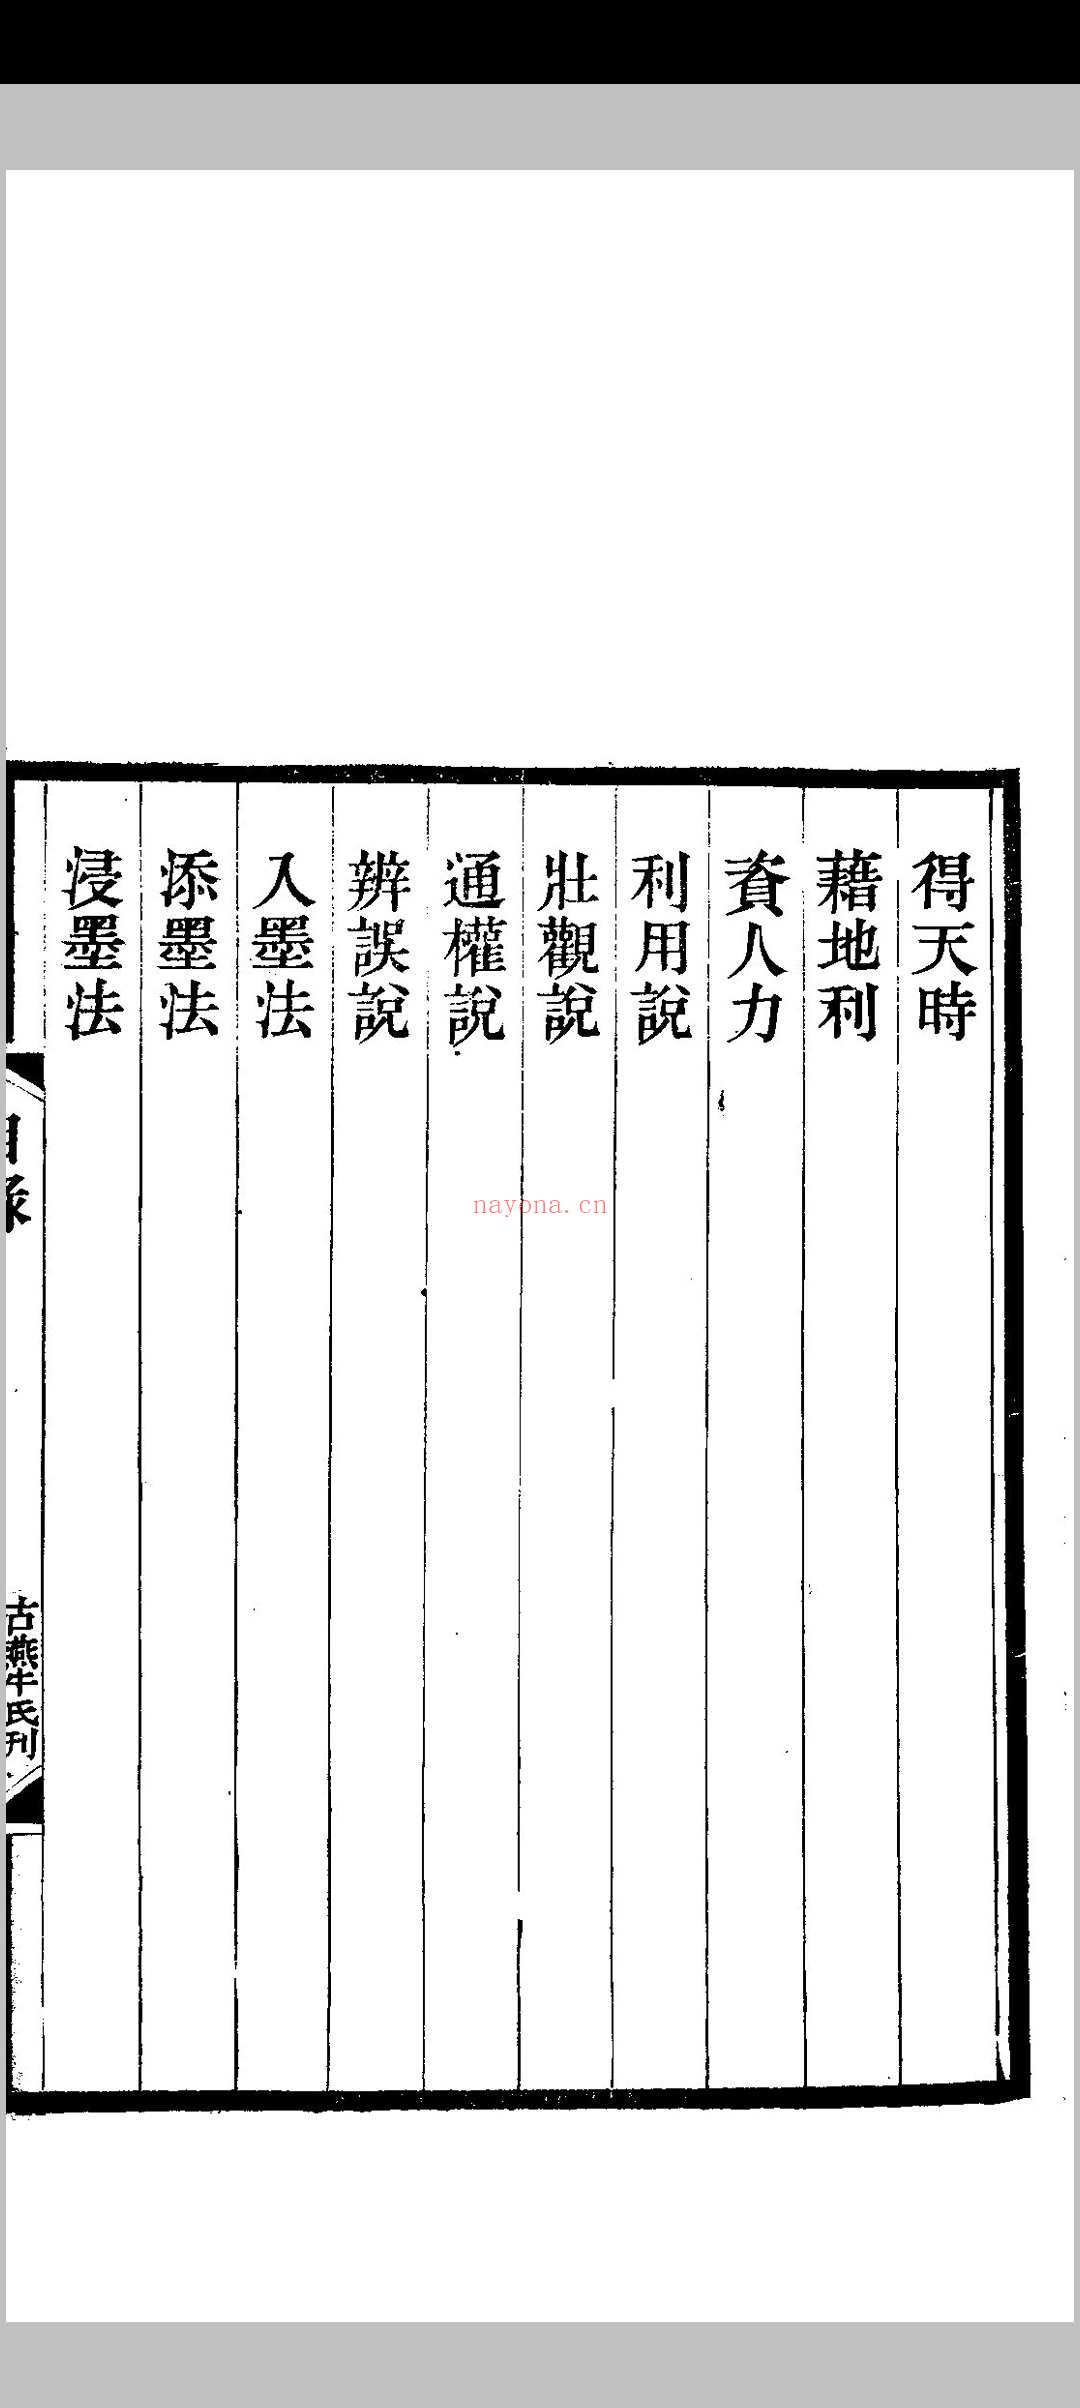 得天時
藉地利
資人力
利用說
壯觀說
通權說
辨誤說
入墨法
添墨法
浸墨法
目錄
古燕牛氏刊
nayona.cn